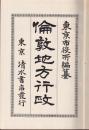 東京市役所編纂
倫敦地方行政
東京 清水書店發行